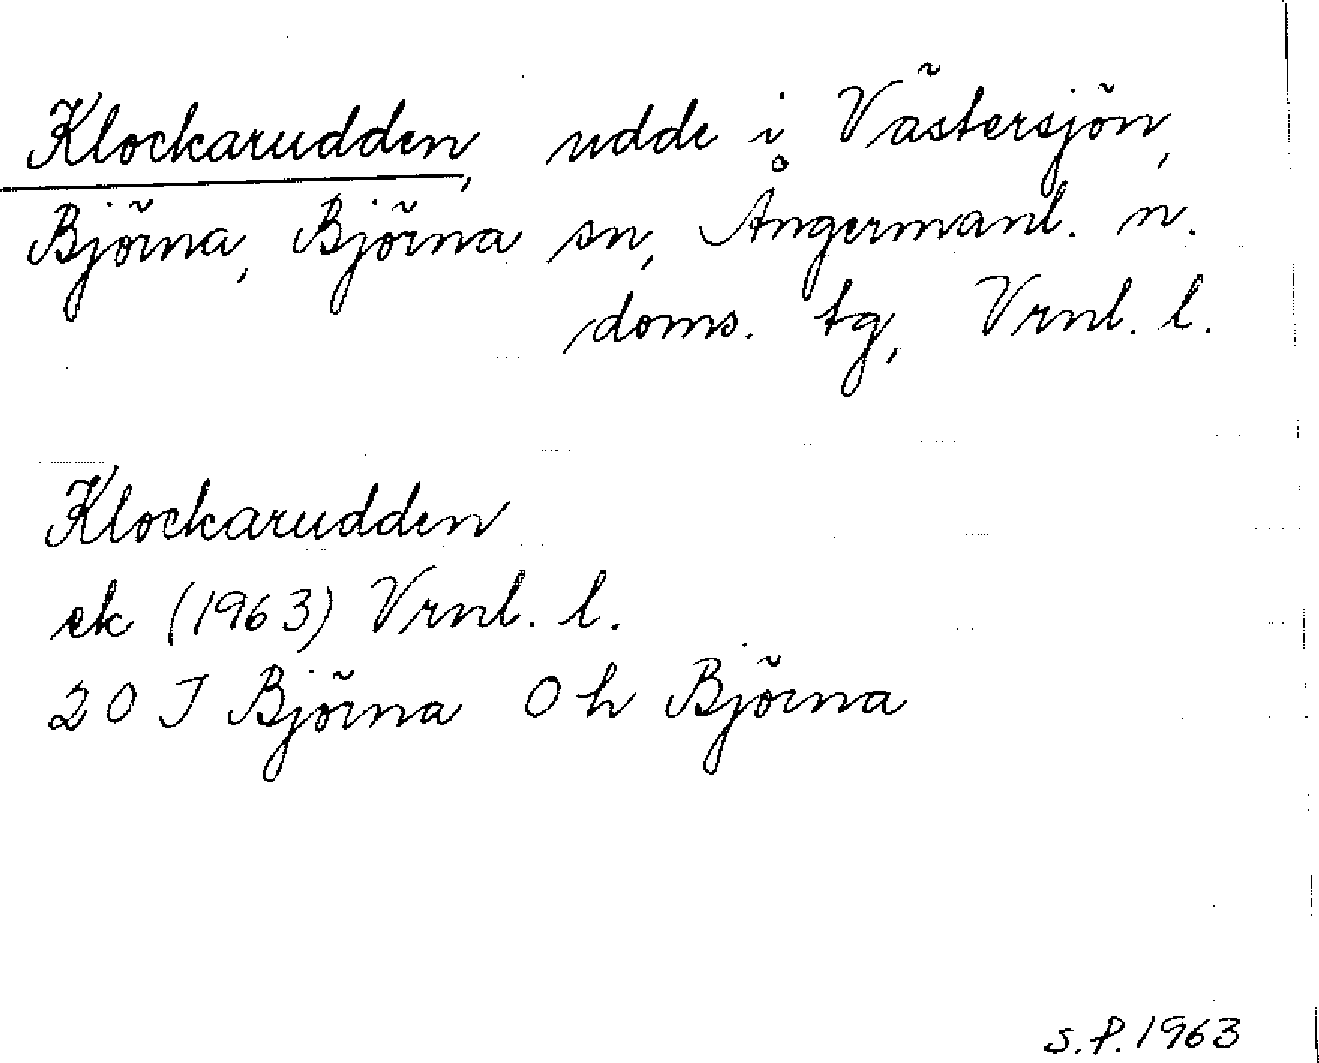 Klockarudden, udde i Västersjön,
Björna, Björna sn, Ångermanl. n.
doms. tg, Vrnl. l.
Klockarudden
ek (1963) Vrnl. l.
20 J Björna 0 h Björna
S.P. 1963